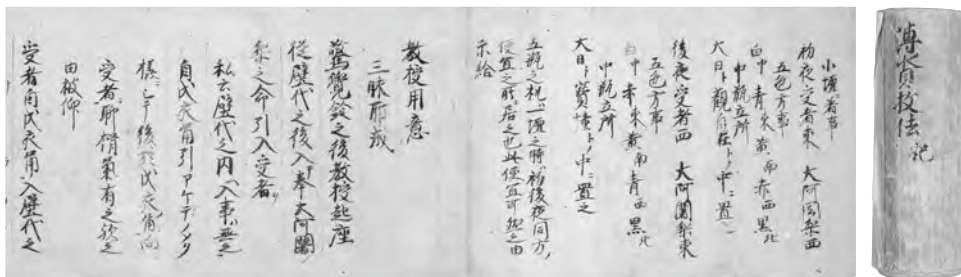 小壇者事
初夜受者東　大阿闍梨西
五色方事
白中　青東　黄南　赤西　黒北
中瓶立所
大日ト観自在トノ中ニ置之
後夜受者西　大阿闍梨東
五色方事
白中　赤東　黄南　青西　黒北
中瓶立所
大日ト宝幢トノ中ニ置之
五瓶之机一壇之時初後夜同方
便宜之所居之也此便宜可然之由
示給
教授用意
三昧耶戒
驚覚鈴之後教授起座
従壁代之後入奉大阿闍
梨之命引入受者
私云壁代之内ヘ入事無之
自成衣角引アケテノソク
様ニ
受者
由被仰
受者自
衣角入壁代之
薄質授伝記